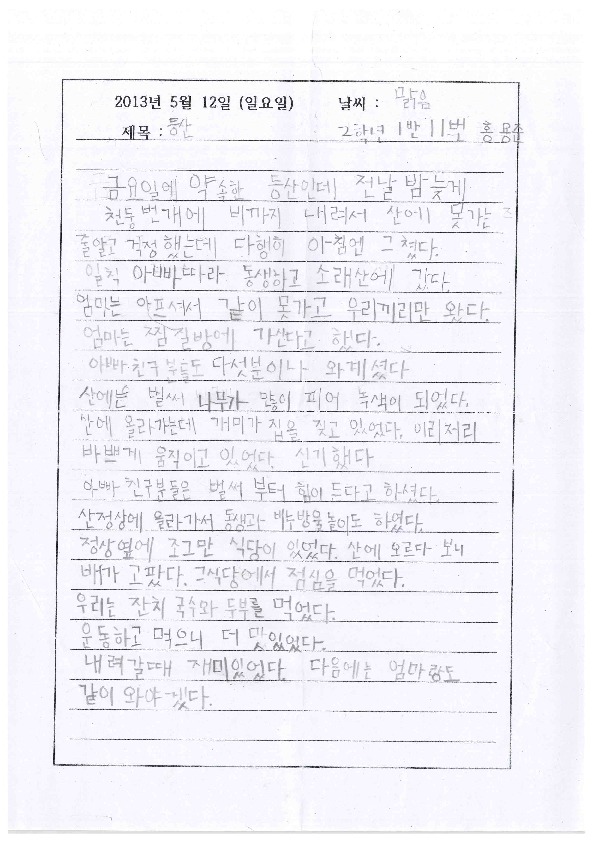 2013년 5월 12일 (일요일) 날씨 : 맑음
제목 : 등산 2학년 1반 11번 홍용준
금요일에 약속한 등산인데 전날 밤늦게
천둥번개에 비까지 내려서 산에 못가는
줄알고 걱정했는데 다행히 아침엔 그쳤다.
일찍 아빠따라 동생하고 소래산에 갔다.
엄마는 아프셔서 같이 못가고 우리끼리만 왔다.
엄마는 찜질방에 가신다고 했다.
아빠 친구 분들도 다섯분이나 와계셨다
산에는 벌써 나무가 많이 피어 녹색이 되었다.
산에 올라가는데 개미가 집을 짖고 있었다. 이리저리
바쁘게 움직이고 있었다. 신기했다
아빠 친구분들은 벌써 부터 힘이 든다고 하셨다.
산정상에 올라가서 동생과 비누방울놀이도 하였다.
정상옆에 조그만 식당이 있었다. 산에 오르다 보니
배가 고팠다. 그식당에서 점심을 먹었다.
우리는 잔치 국수와 두부를 먹었다.
운동하고 먹으니 더 맛있었다.
내려갈때 재미있었다. 다음에는 엄마랑도
같이 와야 겠다.